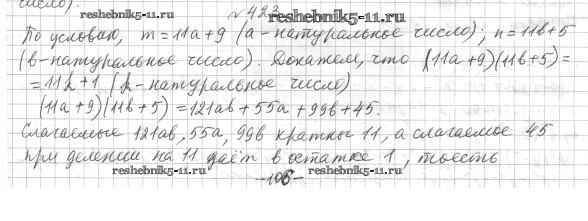 число).
reshebnik5-11.ru
№423
По условию, m = 11a+9 (a - натуральное число); n = 11b+5
(b - натуральное число). Докажем, что (11a+9)(11b+5)=
= 11k+1 (k - натуральное число)
(11a+9)(11b+5) = 121ab + 55a + 99b + 45.
Слагаемые 121ab, 55a, 99b кратны 11, а слагаемое 45
при делении на 11 даёт в остатке 1, то есть
reshebnik5-11.ru
-106-
reshebnik5-11.ru